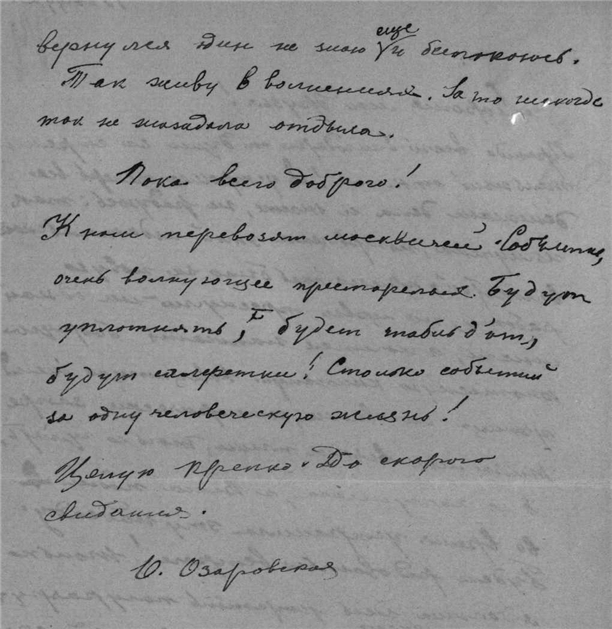 вернулся один не знаю еще и беспокоюсь.
Так живу в волнениях. Зато никогда
так не жаждала отдыха.
Пока всего доброго!
К нам перевозят москвичей. Событие,
очень волнующее престарелых. Будут
уплотнять, будет табльд'от,
будут салфетки! Столько событий
за одну человеческую жизнь!
Целую крепко. До скорого
свидания.
О. Озаровская